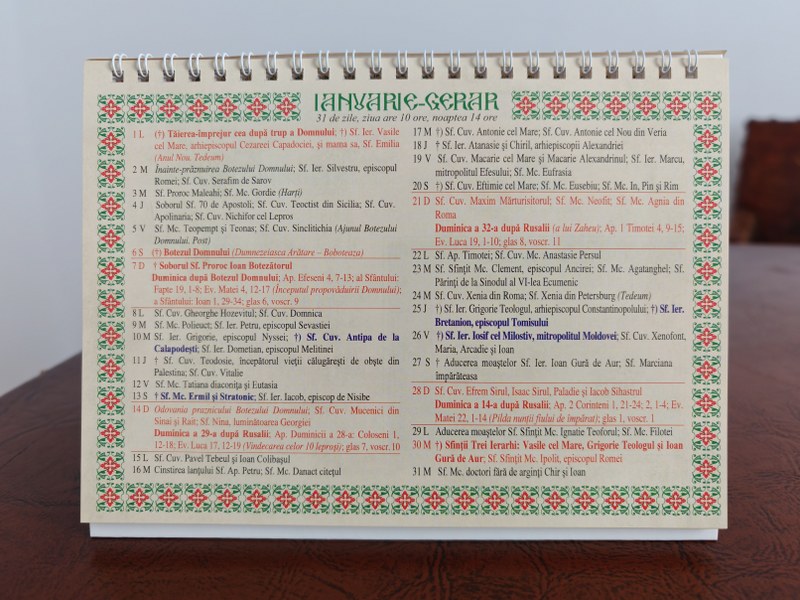 IANUARIE-GERAR
31 de zile, ziua are 10 ore, noaptea 14 ore
1 L (†) Tăierea-împrejur cea după trup a Domnului; †) Sf. Ier. Vasile
cel Mare, arhiepiscopul Cezareei Capadociei, și mama sa, Sf. Emilia
(Anul Nou. Tedeum)
2 M Înainte-prăznuirea Botezului Domnului; Sf. Ier. Silvestru, episcopul
Romei; Sf. Cuv. Serafim de Sarov
3 M Sf. Proroc Maleahi; Sf. Mc. Gordie (Harți)
4 J Soborul Sf. 70 de Apostoli; Sf. Cuv. Teoctist din Sicilia; Sf. Cuv.
Apolinaria; Sf. Cuv. Nichifor cel Lepros
5 V Sf. Mc. Teopempt și Teonas; Sf. Cuv. Sinclitichia (Ajunul Botezului
Domnului. Post)
6 S (†) Botezul Domnului (Dumnezeiasca Arătare – Boboteaza)
7 D † Soborul Sf. Proroc Ioan Botezătorul
Duminica după Botezul Domnului; Ap. Efeseni 4, 7-13; al Sfântului:
Fapte 19, 1-8; Ev. Matei 4, 12-17 (Începutul propovăduirii Domnului);
a Sfântului: Ioan 1, 29-34; glas 6, voscr. 9
8 L Sf. Cuv. Gheorghe Hozevitul; Sf. Cuv. Domnica
9 M Sf. Mc. Polieuct; Sf. Ier. Petru, episcopul Sevastiei
10 M Sf. Ier. Grigorie, episcopul Nyssei; †) Sf. Cuv. Antipa de la
Calapodești; Sf. Ier. Dometian, episcopul Melitinei
11 J † Sf. Cuv. Teodosie, începătorul vieții călugărești de obște din
Palestina; Sf. Cuv. Vitalie
12 V Sf. Mc. Tatiana diaconița și Eutasia
13 S † Sf. Mc. Ermil și Stratonic; Sf. Ier. Iacob, episcop de Nisibe
14 D Odovania praznicului Botezului Domnului; Sf. Cuv. Mucenici din
Sinai și Rait; Sf. Nina, luminătoarea Georgiei
Duminica a 29-a după Rusalii; Ap. Duminicii a 28-a: Coloseni 1,
12-18; Ev. Luca 17, 12-19 (Vindecarea celor 10 leproși); glas 7, voscr. 10
15 L Sf. Cuv. Pavel Tebeul și Ioan Colibașul
16 M Cinstirea lanțului Sf. Ap. Petru; Sf. Mc. Danact citețul
17 M †) Sf. Cuv. Antonie cel Mare; Sf. Cuv. Antonie cel Nou din Veria
18 J † Sf. Ier. Atanasie și Chiril, arhiepiscopii Alexandriei
19 V Sf. Cuv. Macarie cel Mare și Macarie Alexandrinul; Sf. Ier. Marcu,
mitropolitul Efesului; Sf. Mc. Eufrasia
20 S †) Sf. Cuv. Eftimie cel Mare; Sf. Mc. Eusebiu; Sf. Mc. In, Pin și Rim
21 D Sf. Cuv. Maxim Mărturisitorul; Sf. Mc. Neofit; Sf. Mc. Agnia din
Roma
Duminica a 32-a după Rusalii (a lui Zaheu); Ap. 1 Timotei 4, 9-15;
Ev. Luca 19, 1-10; glas 8, voscr. 11
22 L Sf. Ap. Timotei; Sf. Cuv. Mc. Anastasie Persul
23 M Sf. Sfințit Mc. Clement, episcopul Ancirei; Sf. Mc. Agatanghel; Sf.
Părinți de la Sinodul al VI-lea Ecumenic
24 M Sf. Cuv. Xenia din Roma; Sf. Xenia din Petersburg (Tedeum)
25 J †) Sf. Ier. Grigorie Teologul, arhiepiscopul Constantinopolului; †) Sf. Ier.
Bretanion, episcopul Tomisului
26 V †) Sf. Ier. Iosif cel Milostiv, mitropolitul Moldovei; Sf. Cuv. Xenofont,
Maria, Arcadie și Ioan
27 S † Aducerea moaștelor Sf. Ier. Ioan Gură de Aur; Sf. Marciana
împărăteasa
28 D Sf. Cuv. Efrem Sirul, Isaac Sirul, Paladie și Iacob Sihastrul
Duminica a 14-a după Rusalii; Ap. 2 Corinteni 1, 21-24; 2, 1-4; Ev.
Matei 22, 1-14 (Pilda nunții fiului de împărat); glas 1, voscr. 1
29 L Aducerea moaștelor Sf. Sfințit Mc. Ignatie Teoforul; Sf. Mc. Filotei
30 M † Sfinții Trei Ierarhi: Vasile cel Mare, Grigorie Teologul și Ioan
Gură de Aur; Sf. Sfințit Mc. Ipolit, episcopul Romei
31 M Sf. Mc. doctori fără de arginți Chir și Ioan